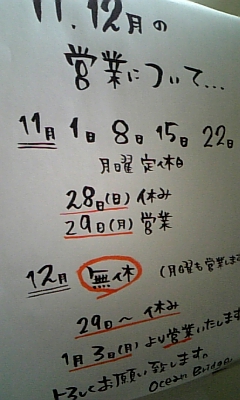 11.12月の
営業について...
11月 1日 8日 15日 22日
月曜定休日
28日(日)休み
29日(月)営業
12月 無休 (月曜も営業します
29日〜休み
1月3日(月)より営業いたします
よろしくお願い致します。
Ocean Bridge